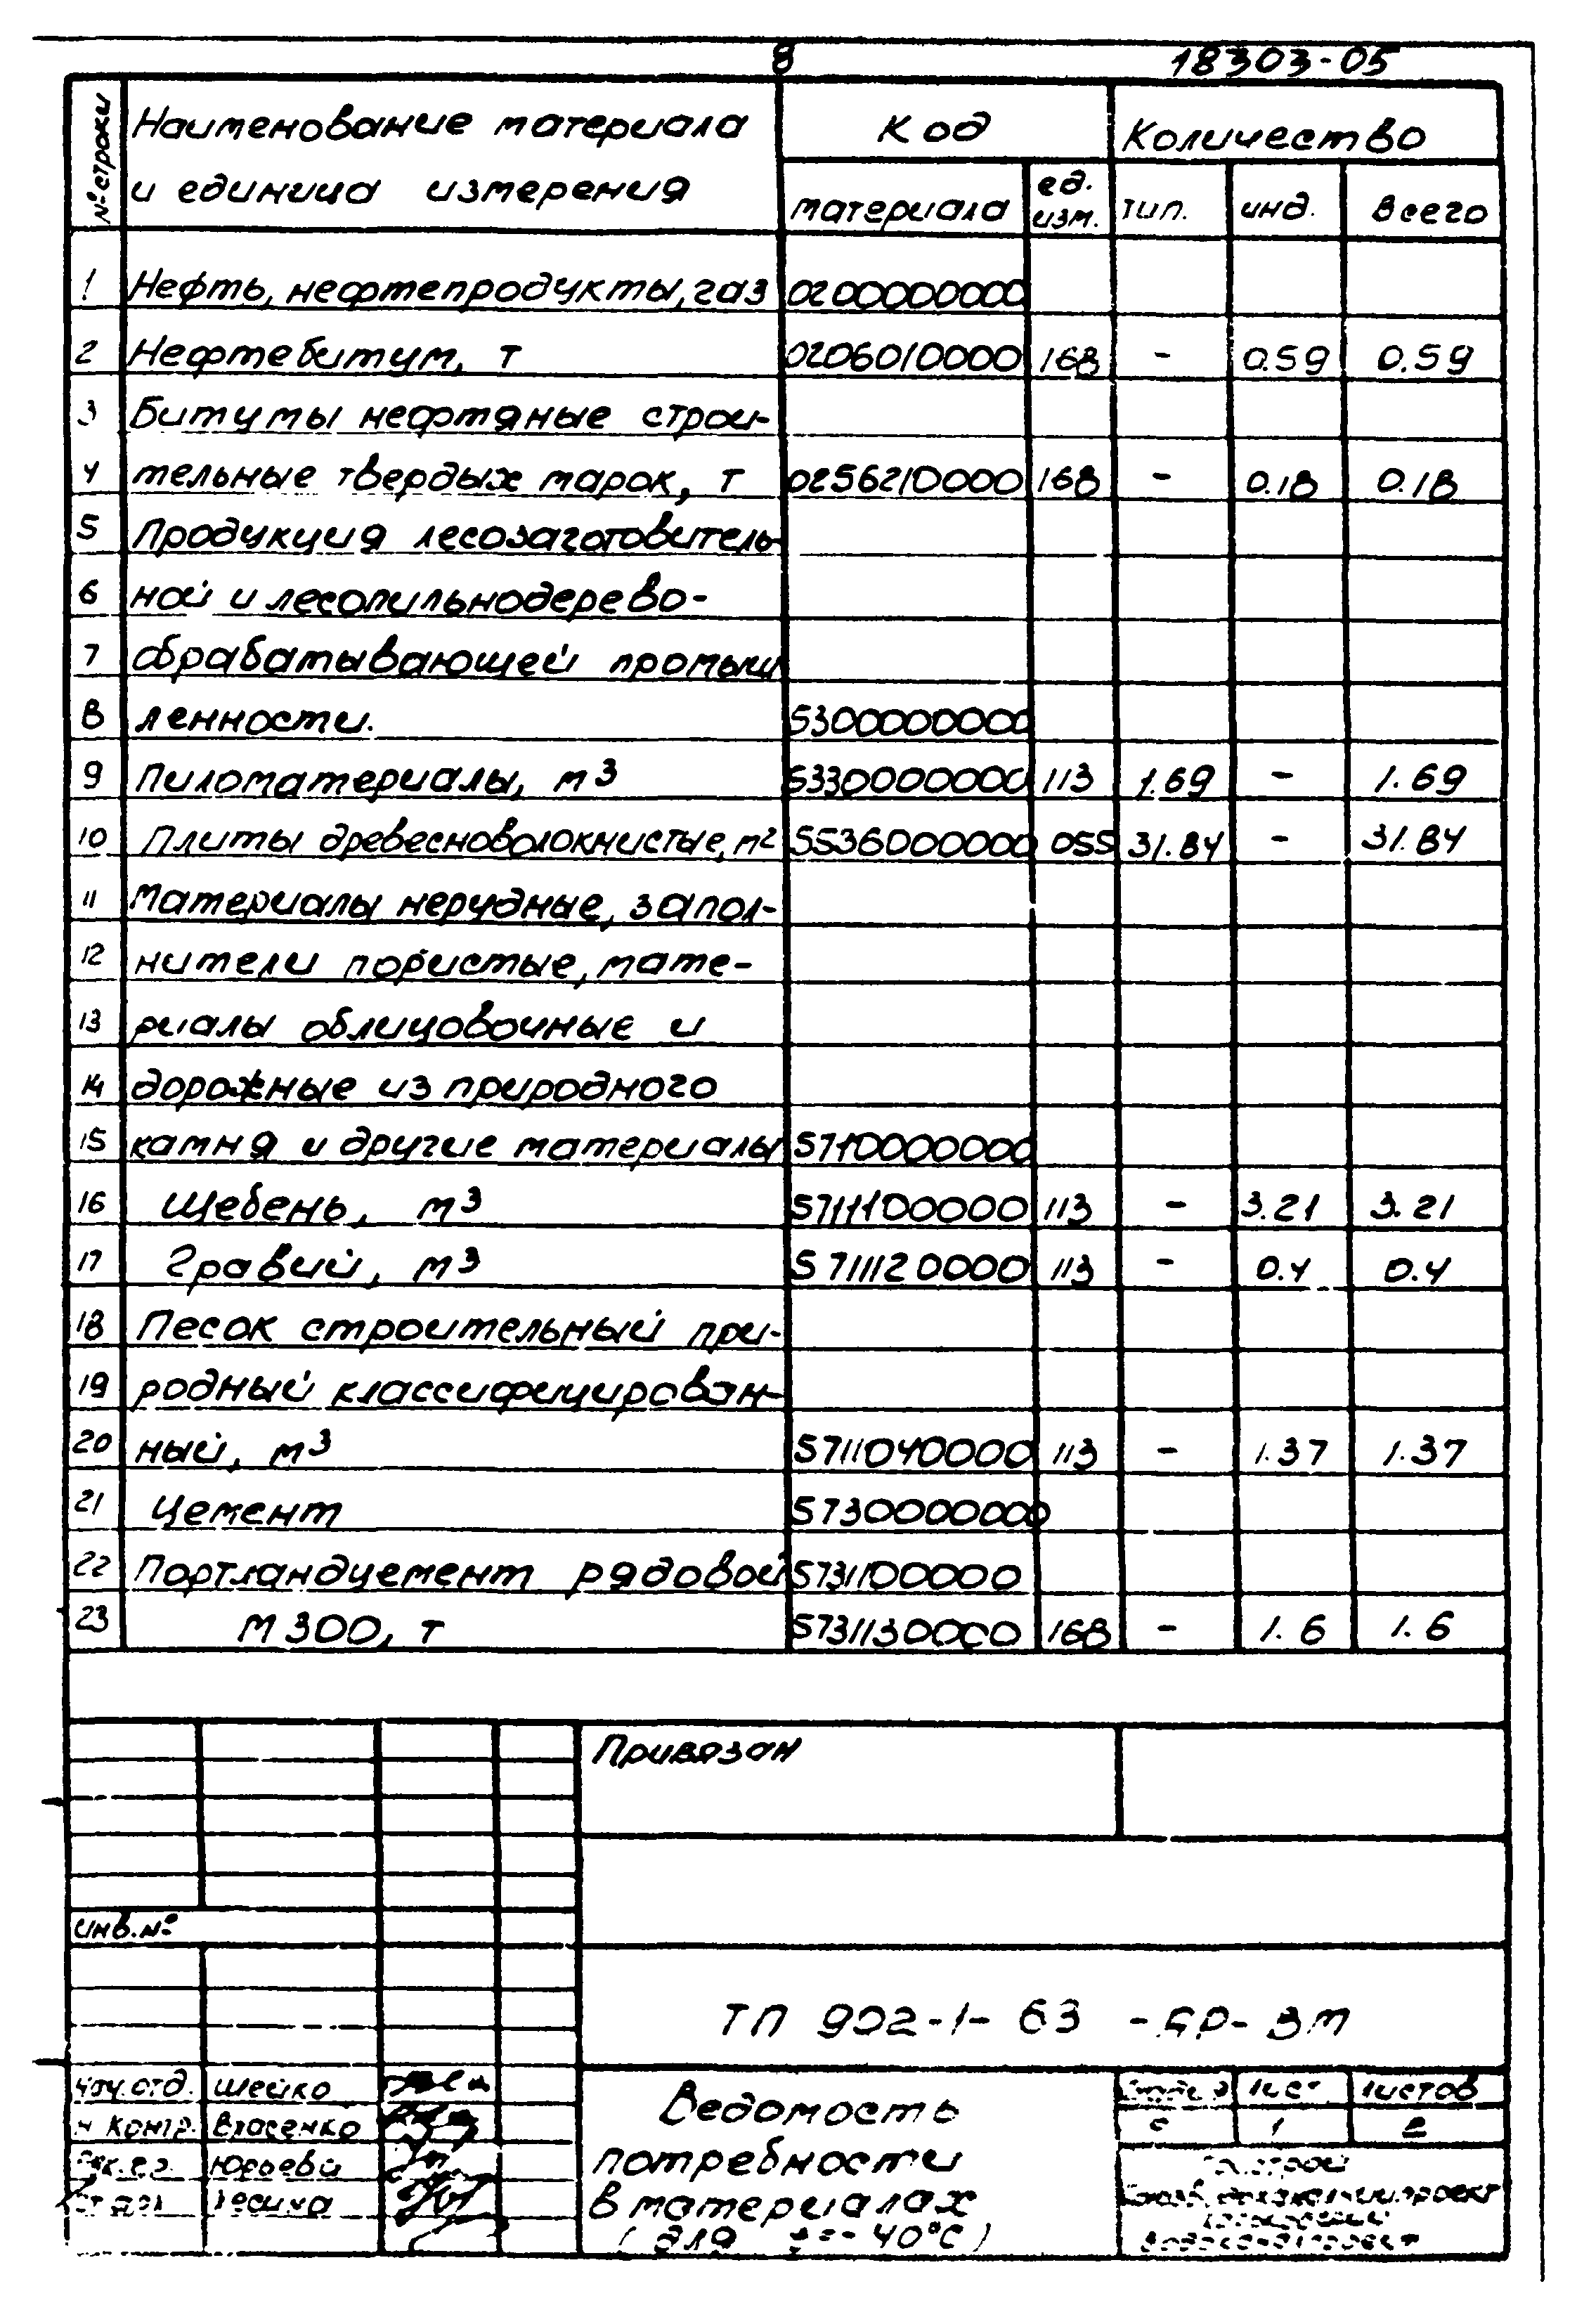 8 18303-05
№ строки Наименование материала Код Количество
и единица измерения материала ед. изм. тип. инд. всего
1 Нефть, нефтепродукты, газ 0200000000
2 Нефтебитум, т 0206010000 168 - 0.59 0.59
3 Битумы нефтяные строи-
4 тельные твердых марок, т 0256210000 168 - 0.18 0.18
5 Продукция лесозаготовитель-
6 ной и лесопильнодерево-
7 обрабатывающей промыш
8 ленности. 5300000000
9 Пиломатериалы, м3 5330000000 113 1.69 - 1.69
10 Плиты древесноволокнистые, м2 5536000000 055 31.84 - 31.84
11 Материалы нерудные, запол-
12 нители пористые, мате-
13 риалы облицовочные и
14 дорожные из природного
15 камня и другие материалы 5710000000
16 Щебень, м3 5711100000 113 - 3.21 3.21
17 Гравий, м3 5711120000 113 - 0.4 0.4
18 Песок строительный при-
19 родный классифицирован-
20 ный, м3 5711040000 113 - 1.37 1.37
21 Цемент 5730000000
22 Портландцемент рядовой 5731100000
23 М 300, т 5731130000 168 - 1.6 1.6
Привязан
инв. №
ТП 902-1-63 - ВМ
Нач. отд. Шейко
Н контр. Власенко
Юрьева
Ведомость
потребности
в материалах
(для t=-40°С)
Лист Листов
с 1 2